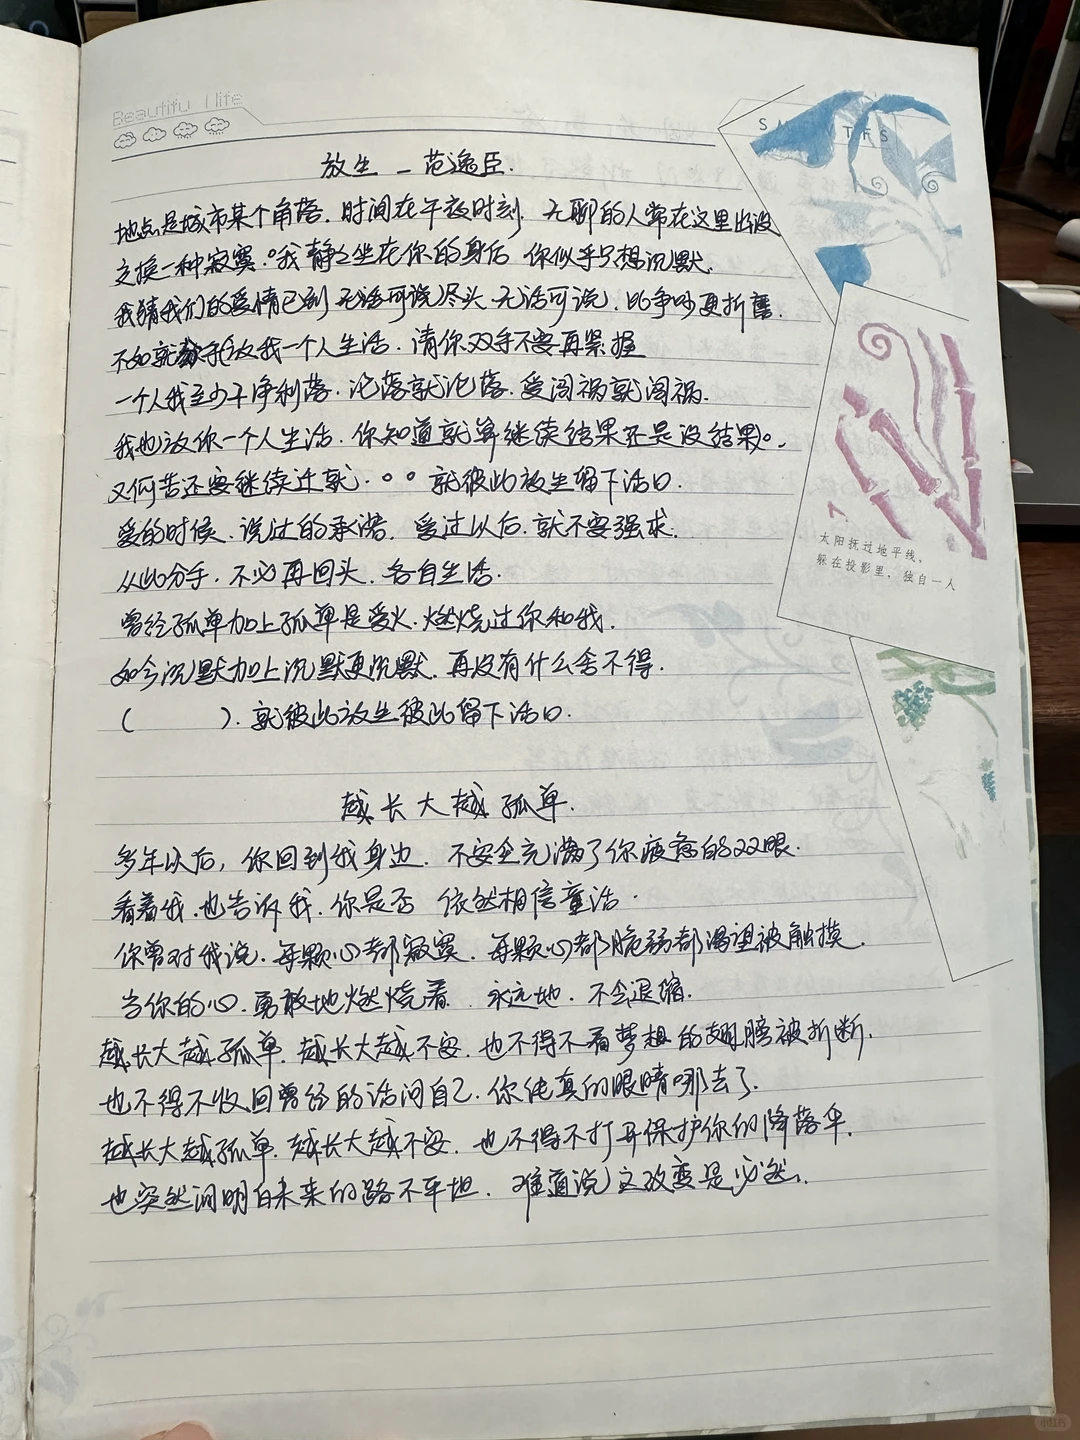 Beautifu l life
SA
TFS
放生 — 范逸臣.
地点是城市某个角落. 时间在午夜时刻. 无聊的人常在这里出没
交换一种寂寞.。我静静坐在你的身后 你似乎只想沉默.
我猜我们的爱情已到 无话可说尽头. 无话可说. 比争吵更折旧.
不如就放我一个人生活. 请你双手不要再紧握
一个人我至少干净利落. 沦落就沦落. 爱闯祸就闯祸.
我也放你一个人生活. 你知道就算继续结果还是没结果。.
又何苦还要继续迁就. 。。就彼此放生留下活口.
爱的时候. 说过的承诺. 爱过以后. 就不要强求.
从此分手. 不必再回头. 各自生活.
曾经孤单加上孤单是爱火. 燃烧过你和我.
如今沉默加上沉默更沉默. 再没有什么舍不得.
( ). 就彼此放生彼此留下活口.
太阳抚过地平线，
躲在投影里，独自一人
越长大越孤单.
多年以后, 你回到我身边. 不安全充满了你疲惫的双眼.
看着我. 也告诉我. 你是否 依然相信童话.
你曾对我说. 每颗心都寂寞. 每颗心都脆弱都渴望被触摸.
当你的心. 勇敢地燃烧着 永远地. 不会退缩.
越长大越孤单. 越长大越不安. 也不得不看梦想的翅膀被折断.
也不得不收回曾经的话问自己. 你纯真的眼睛哪去了.
越长大越孤单. 越长大越不安. 也不得不打开保护你的降落伞.
也突然间明白未来的路不平坦. 难道说这改变是必然.